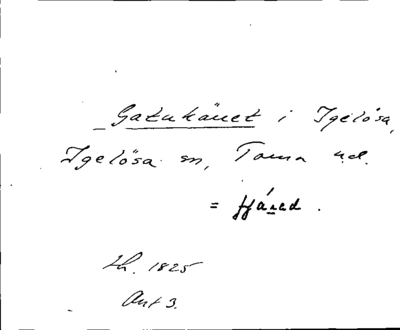 Gatukäret i Igelösa,
Igelösa sn, Torna hd.
= fjáred.
lh. 1825
Ant 3.